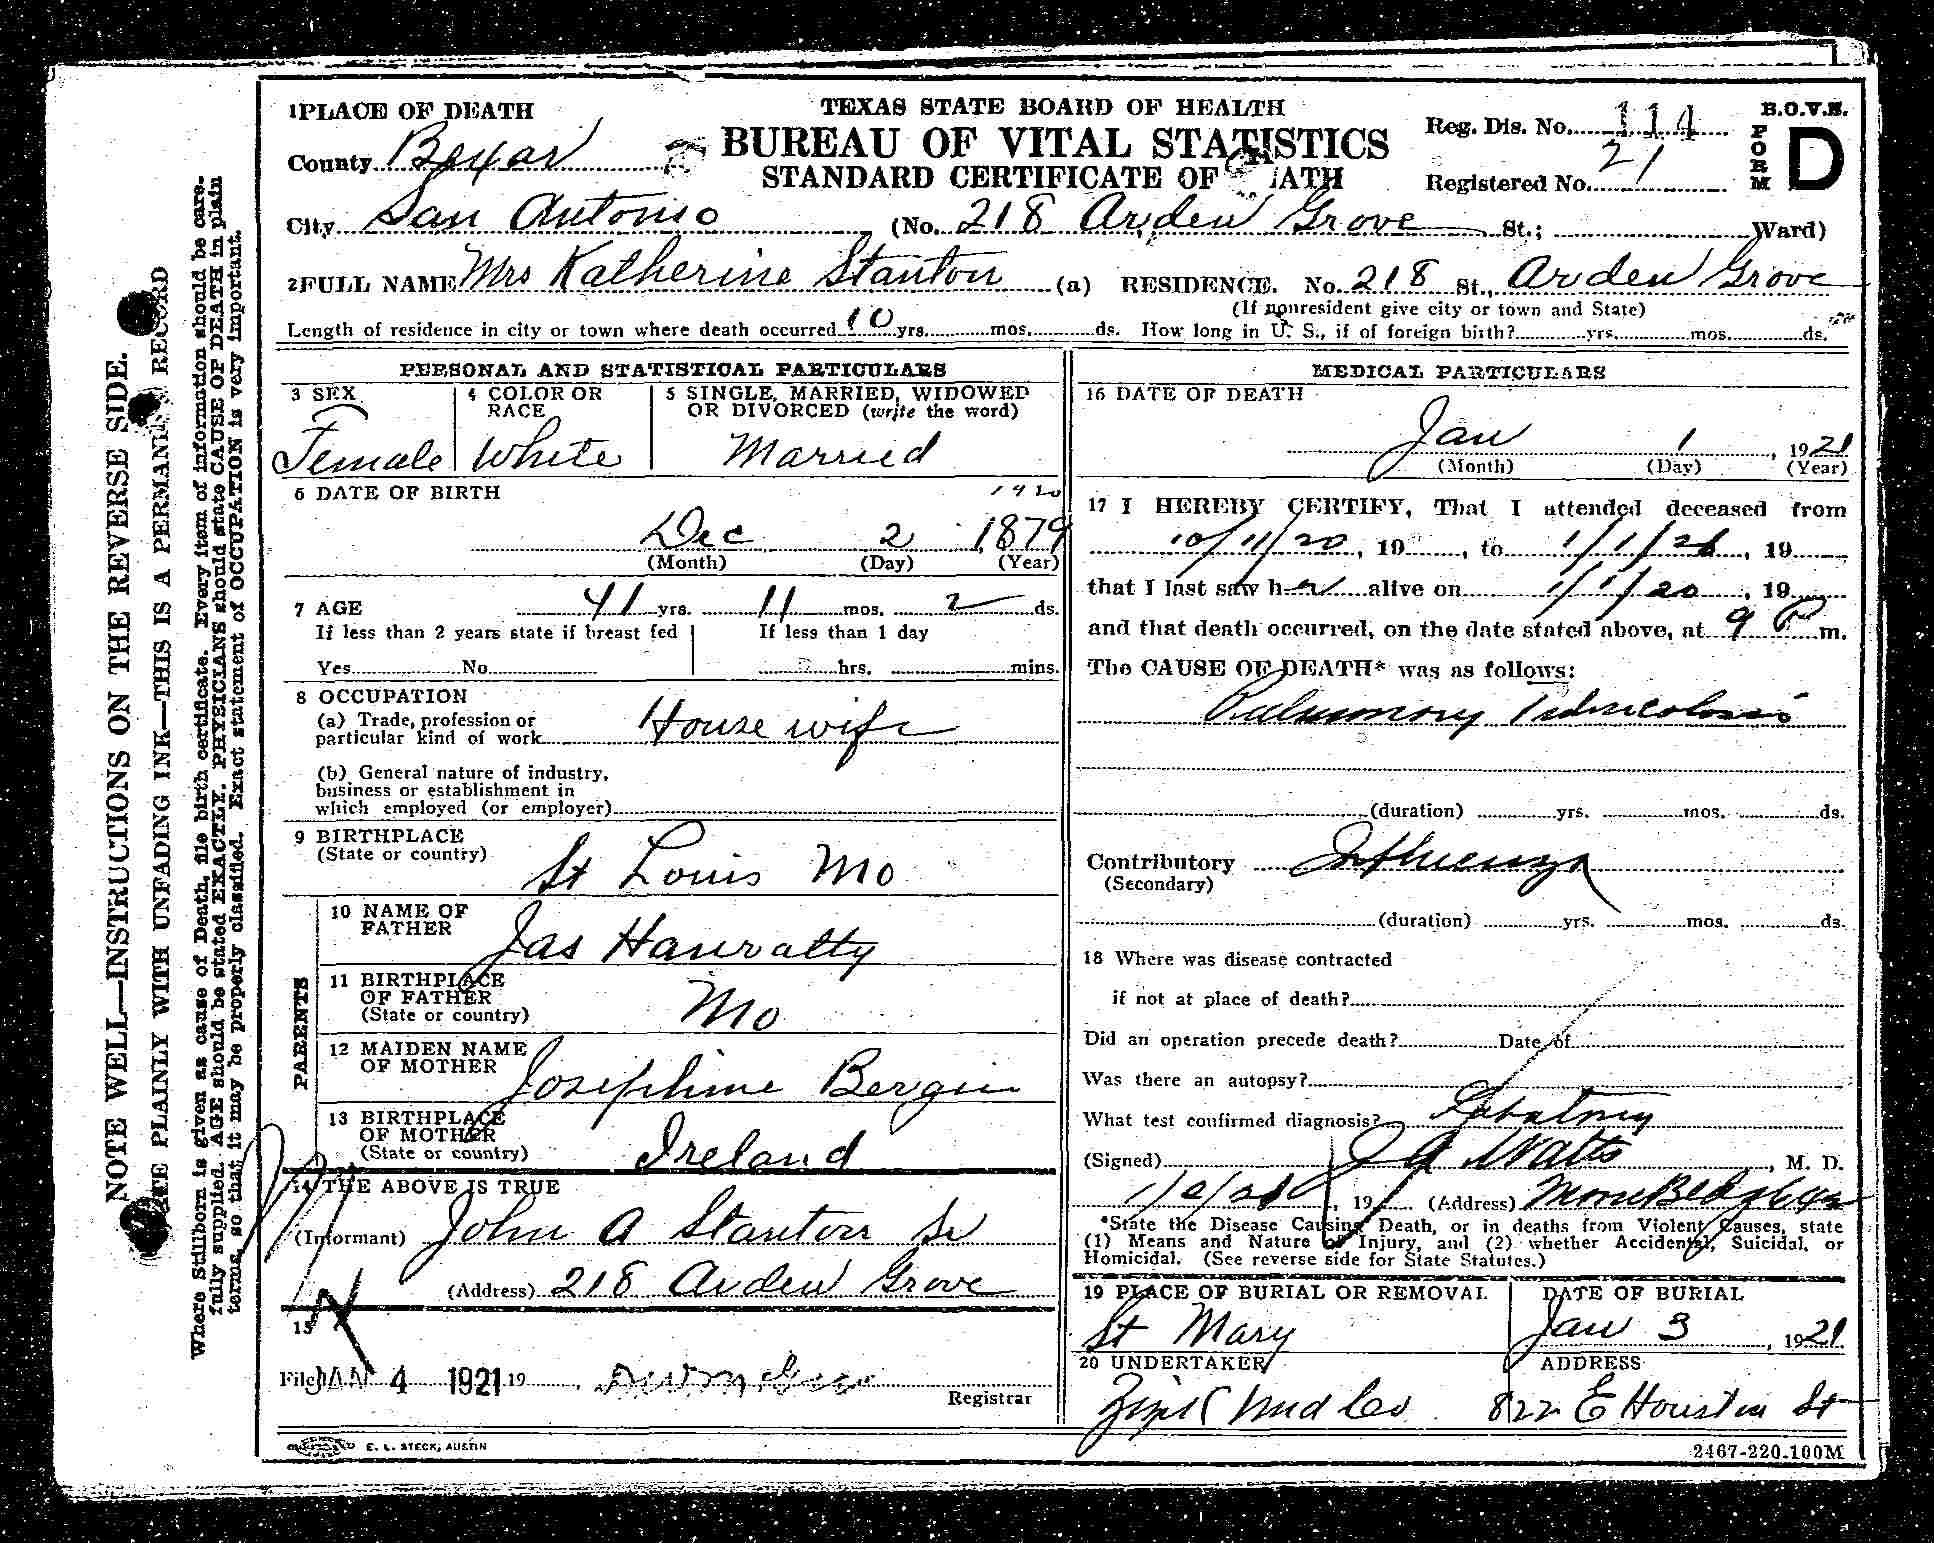 1 PLACE OF DEATH
TEXAS STATE BOARD OF HEALTH
BUREAU OF VITAL STATISTICS
STANDARD CERTIFICATE OF DEATH
Reg. Dis. No. 114
Registered No. 21
B.O.V.S.
FORM D
County Bexar
City San Antonio (No. 218 Arden Grove St.; Ward)
2 FULL NAME Mrs Katherine Stanton (a) RESIDENCE. No. 218 St., Arden Grove
(If nonresident give city or town and State)
Length of residence in city or town where death occurred 10 yrs. mos. ds. How long in U. S., if of foreign birth? yrs. mos. ds.
PERSONAL AND STATISTICAL PARTICULARS
3 SEX
Female
4 COLOR OR RACE
White
5 SINGLE, MARRIED, WIDOWED
OR DIVORCED (write the word)
Married
6 DATE OF BIRTH
1920
Dec 2 1879
(Month) (Day) (Year)
7 AGE 41 yrs. 11 mos. 2 ds.
If less than 2 years state if breast fed
Yes No
If less than 1 day
hrs. mins.
8 OCCUPATION
(a) Trade, profession or
particular kind of work House wife
(b) General nature of industry,
business or establishment in
which employed (or employer)
9 BIRTHPLACE
(State or country)
St Louis Mo
PARENTS
10 NAME OF
FATHER
Jas Hanratty
11 BIRTHPLACE
OF FATHER
(State or country)
Mo
12 MAIDEN NAME
OF MOTHER
Josephine Bergin
13 BIRTHPLACE
OF MOTHER
(State or country)
Ireland
14 THE ABOVE IS TRUE
(Informant) John A Stanton Sr
(Address) 218 Arden Grove
15
Filed JAN 4 1921 19
Registrar
MEDICAL PARTICULARS
16 DATE OF DEATH
Jan 1, 1921
(Month) (Day) (Year)
17 I HEREBY CERTIFY, That I attended deceased from
10/11/20, 19 , to 1/1/21, 19
that I last saw her alive on 1/1/20, 19
and that death occurred, on the date stated above, at 9 P m.
The CAUSE OF DEATH* was as follows:
Pulmonary Tuberculosis
(duration) yrs. mos. ds.
Contributory Influenza
(Secondary)
(duration) yrs. mos. ds.
18 Where was disease contracted
if not at place of death?
Did an operation precede death? Date of
Was there an autopsy?
What test confirmed diagnosis? Labatory
(Signed) J A Watts, M. D.
1/2/21, 19 (Address) Moore Bldg
*State the Disease Causing Death, or in deaths from Violent Causes, state
(1) Means and Nature of Injury, and (2) whether Accidental, Suicidal, or
Homicidal. (See reverse side for State Statutes.)
19 PLACE OF BURIAL OR REMOVAL
St Mary
DATE OF BURIAL
Jan 3, 1921
20 UNDERTAKER
Zizik Und Co
ADDRESS
822 E Houston St
E. L. STECK, AUSTIN
2467-220-100M
NOTE WELL—INSTRUCTIONS ON THE REVERSE SIDE.
PLAINLY WITH UNFADING INK—THIS IS A PERMANENT RECORD
Where Stillborn is given as cause of Death, file birth certificate. Every item of information should be care-
fully supplied. AGE should be stated EXACTLY. PHYSICIANS should state CAUSE OF DEATH in plain
terms, so that it may be properly classified. Exact statement of OCCUPATION is very important.